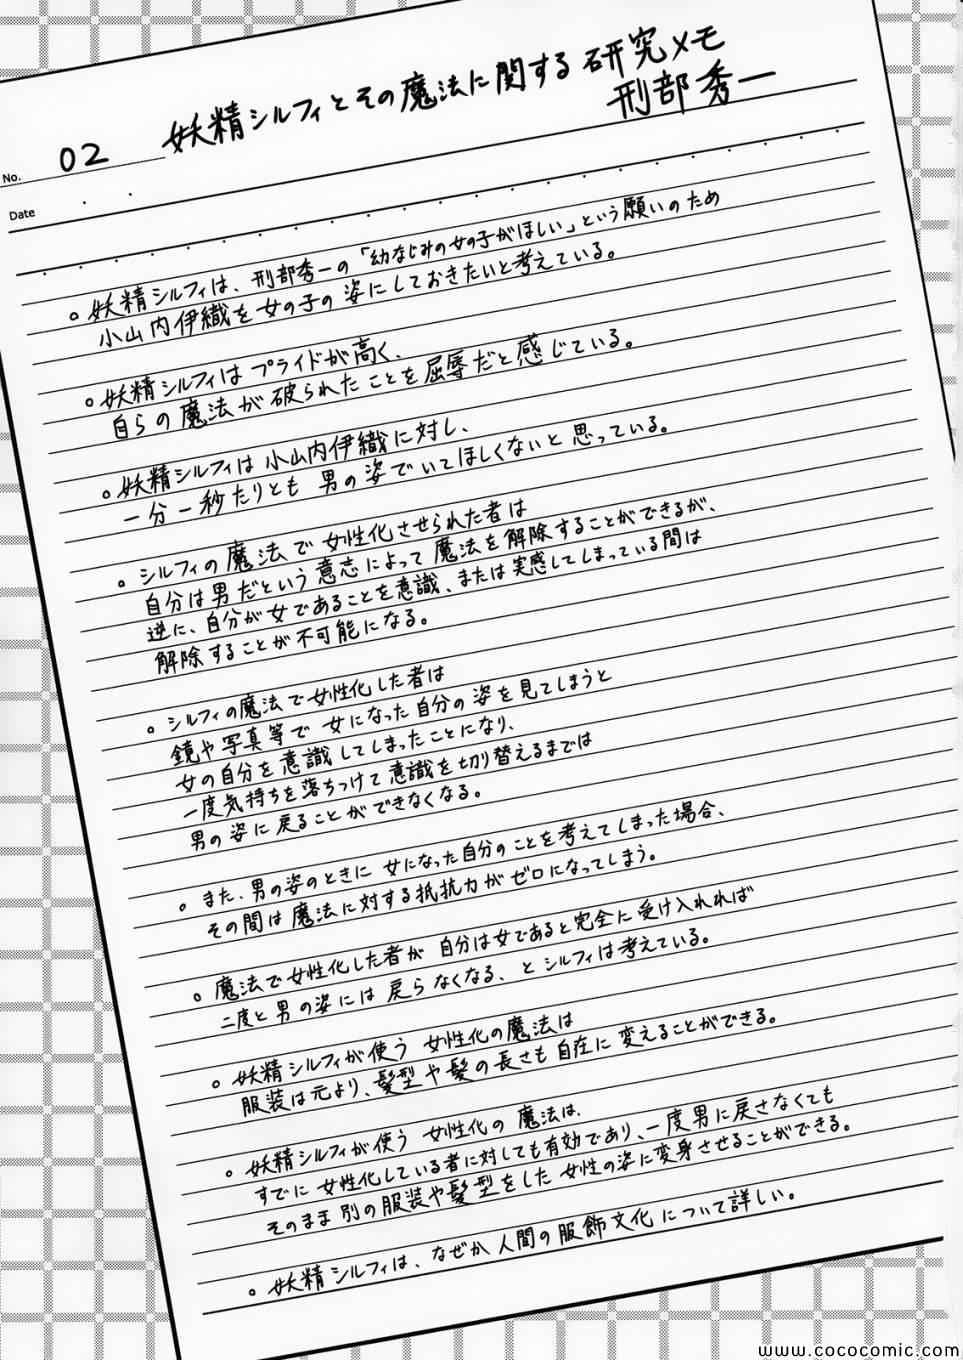 No. 02 妖精シルフィとその魔法に関する研究メモ
刑部秀一
Date
。妖精シルフィは、刑部秀一の「幼なじみの女の子がほしい」という願いのため
小山内伊織を女の子の姿にしておきたいと考えている。
。妖精シルフィはプライドが高く、
自らの魔法が破られたことを屈辱だと感じている。
。妖精シルフィは小山内伊織に対し、
一分一秒たりとも男の姿でいてほしくないと思っている。
。シルフィの魔法で女性化させられた者は
自分は男だという意志によって魔法を解除することができるが、
逆に、自分が女であることを意識、または実感してしまっている間は
解除することが不可能になる。
。シルフィの魔法で女性化した者は
鏡や写真等で女になった自分の姿を見てしまうと
女の自分を意識してしまったことになり、
一度気持ちを落ちつけて意識を切り替えるまでは
男の姿に戻ることができなくなる。
。また、男の姿のときに女になった自分のことを考えてしまった場合、
その間は魔法に対する抵抗力がゼロになってしまう。
。魔法で女性化した者が自分は女であると完全に受け入れれば
二度と男の姿には戻らなくなる、とシルフィは考えている。
。妖精シルフィが使う女性化の魔法は
服装は元より、髪型や髪の長さも自在に変えることができる。
。妖精シルフィが使う女性化の魔法は、
すでに女性化している者に対しても有効であり、一度男に戻さなくても
そのまま別の服装や髪型をした女性の姿に変身させることができる。
。妖精シルフィは、なぜか人間の服飾文化について詳しい。
www.cococomic.com